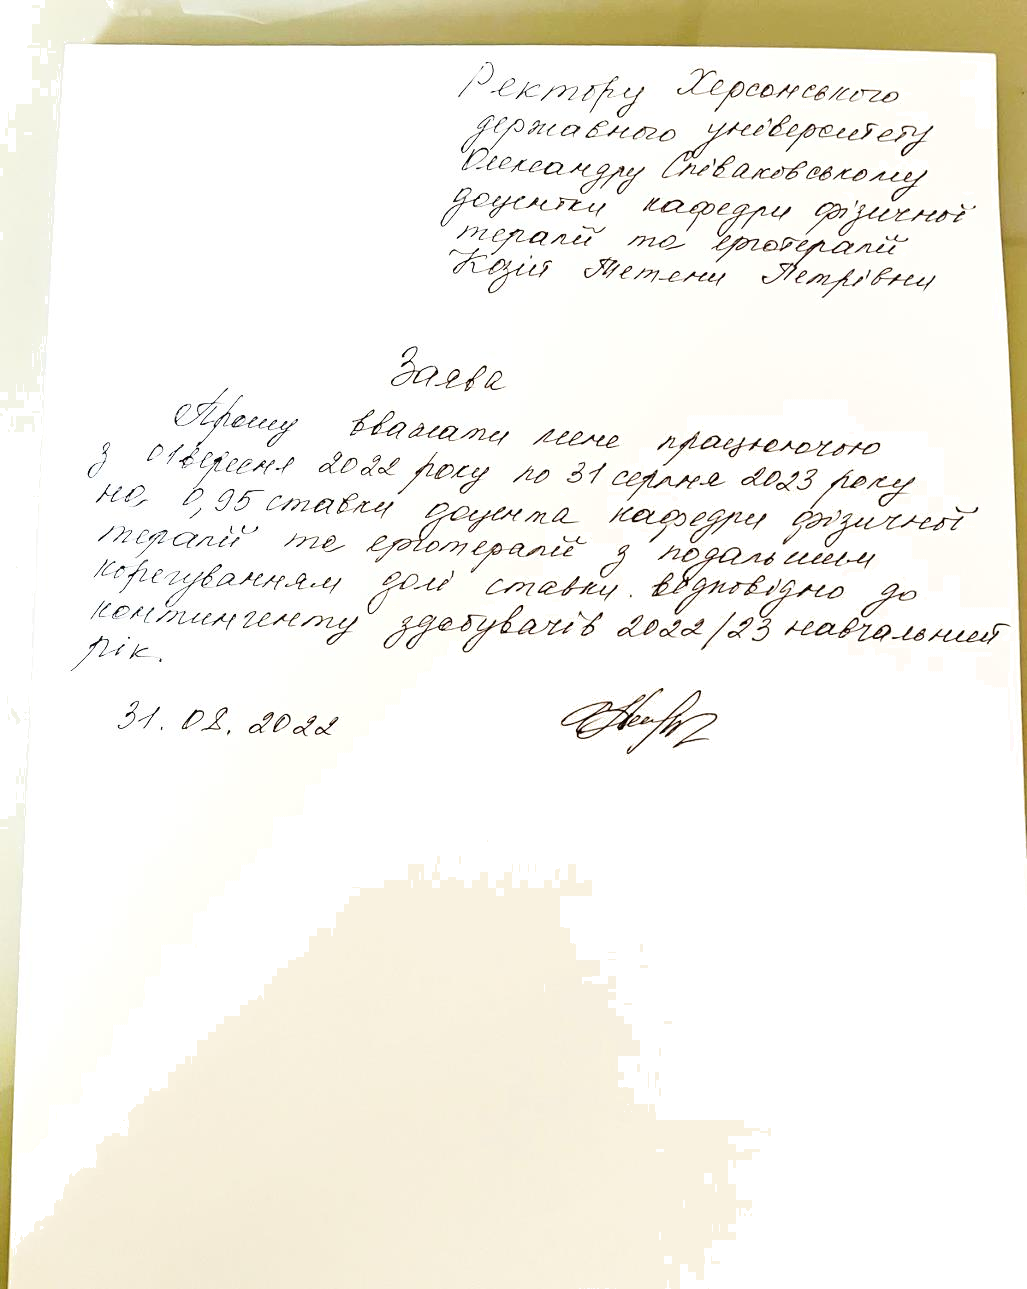 Ректору Херсонського
державного університету
Олександру Співаковському
доцентки кафедри фізичної
терапії та ерготерапії
Козій Тетяни Петрівни
Заява
Прошу вважати мене працюючою
з 01 вересня 2022 року по 31 серпня 2023 року
на 0,95 ставки доцента кафедри фізичної
терапії та ерготерапії з подальшим
корегуванням долі ставки відповідно до
контингенту здобувачів 2022/23 навчальний
рік.
31.08.2022